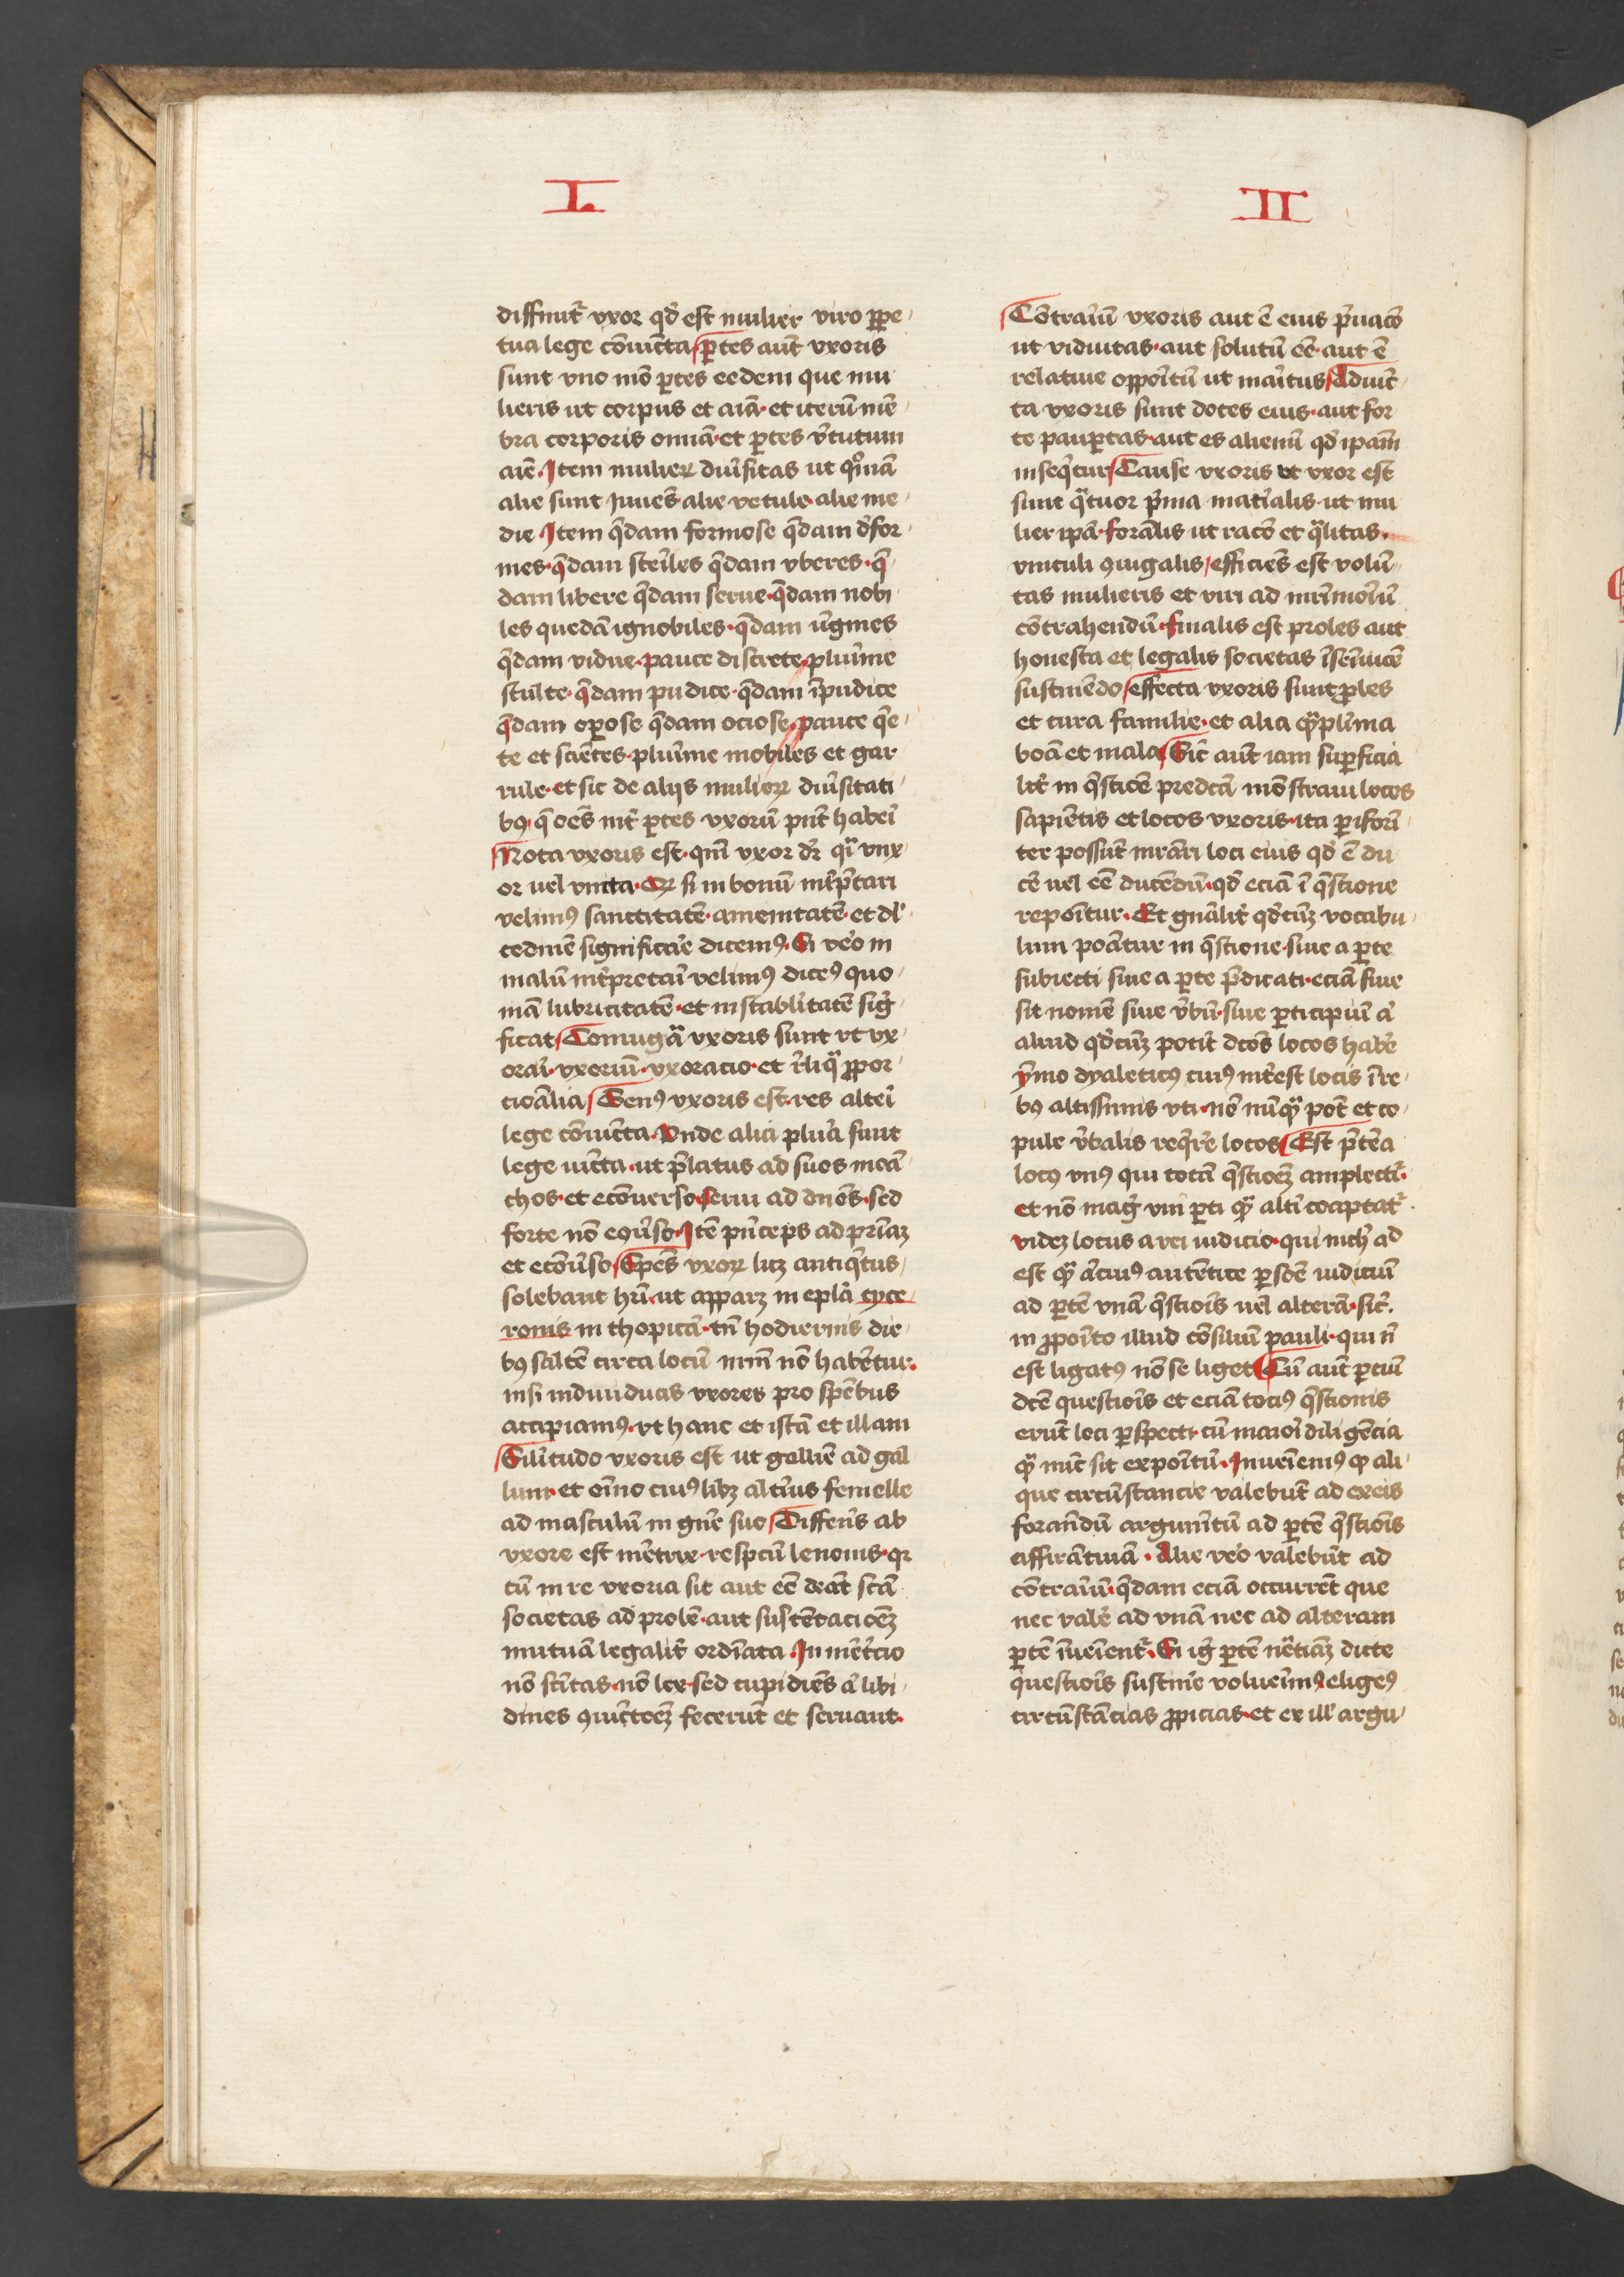 I
diffinit᷑ vxor qd̕ est mulier viro ꝑpe
tua lege cōiuncta ꝑtes aut̄ vxoris
sunt vno mō ꝑtes eedem que mu
lieris ut corpus et aīa· et iterū mē
bra corporis omnia· et ꝑtes v̕tutum
aīe· Item mulieꝝ diu̕sitas ut qm̄
alie sunt iuuēs· alie vetule· alie me
die Item q̄dam formose q̄dam d̕for
mes· q̄dam steriles q̄dam vberes· q̄
dam libere q̄dam serue· q̄dam nobi
les quedā ignobiles· q̄dam v̕gines
q̄dam vidue· pauce discrete· plurīme
stulte· q̄dam pudice· q̄dam īpudice
q̄dam oꝑose q̄dam ociose· pauce q̄e
te et sciētes· plurīme mobiles et gar
rule· et sic de alijs mulieꝝ diu̕sitati
bꝰ q̄ oēs int̕ ꝑtes vxorū pn̄t habeī
Nota vxoris est· qm̄ vxor dr̄ q̄i vnx
or uel vncta· Qꝛ si in bonū int̕p̄tari
velimꝰ sanctitatē· amenitatē· et dl̕
cedinē significare dicemꝰ· Si vēo in
malū int̕pretari velimꝰ dicēꝰ quo
niā lubricitatē· et instabilitatē sig̕
ficat Coniugā vxoris sunt vt vx
orari· vxoriū· vxoracio· et r̄liq̄ ꝓpor
cionālia Genꝰ vxoris est· res alteī
lege cōiuncta· Vnde alicī plura sunt
lege iūcta· ut p̄latus ad suos mōa
chos· et ecōuerso· serui ad dn̄os· sed
forte nō equ̕so· Itē pn̄ceps ad priāꝫ
et ecōu̕so Spēs vxoꝝ licꝫ antiq̄tus
solebant hr̄i ut apparꝫ in epl̄a cyce
ronis in thopica· tn̄ hodiernis die
bꝰ saltē circa locū nr̄m nō habētur·
nisi indiuiduas vxores pro spēbus
accipiamꝰ· vt hanc et istā et illam
Silitudo vxoris est ut gallīe ad gal
lum· et oīno cuiꝰlibꝫ alt̕ius femelle
ad masculū in gn̄e suo Differēs ab
vxore est mētrix· respcū lenonis· qꝛ
cū in re vxoria sit aut eē debeat scā
societas ad prolē· aut sustētacioēꝫ
mutuā legalit̕ ordinata In mēt̕cio
nō scītas· nō lex· sed cupidiēs a̕ libi
dines ꝯiūctoēꝫ fecerūt et seruant·
II
Cōtrariū vxoris aut ē eius p̄uacō
ut viduitas· aut solutū eē· aut ē
relatiue oppoītū ut maritus Adiūc
ta vxoris sunt dotes eius· aut for
te pauꝑtas· aut es alienū qd̕ ipam
inseq̄tur Cause vxoris ut vxor est
sunt q̄tuor p̄ma mat̕ialis· ut mu
lier ipā· formalis ut racō et q̄litas·
vniculi ꝯiugalis efficiēs est volū
tas mulieris et viri ad mr̄imoīū
cōtrahendū· finalis est proles aut
honesta et legalis societas īseīuicē
sustinēdo effecta vxoris sunt ꝓles
et cura familie· et alia q̄pl̄ima
bōa et mala Sic̄ aut̄ iam suꝑficia
lit̕ in q̄stiōe predcā mōstraui locos
sapiētis et locos vxoris· ita ꝑiformi
ter possūt mr̄ari loci eius qd̕ ē du
cē uel eē ducēdū· qd̕ eciā ī q̄stione
repoītur· Et gn̄alit̕ qd̕cūꝫ vocabu
lum pōatur in q̄stione· siue a ꝑte
subiecti siue a ꝑte p̄dicati· eciā siue
sit nomē siue v̕bū· siue ꝑticipiū a̕
aliud qd̕cūꝫ potit̕ dcōs locos habē
ymo dyaleticꝰ cuiꝰ int̕est locis ī re
bꝰ altissimis vti· nō nūq̄ pot̕ et co
pule v̕balis req̄rē locos Est p̄tēa
locꝰ vnꝰ qui totā q̄stioēꝫ amplectit᷑·
et nō mag̕ vni ꝑti q̄ alt̕i coaptat᷑·
videꝫ locus a rei iudicio· qui nich̕ ad
est q̄ a̕cuiꝰ autētice ꝑsōe iudiciū
ad ꝑtē vnā q̄stiois uel alterā· sic̄·
in ꝓpoīto illud cōsiliū pauli· qui n̄
est ligatꝰ nō se liget Cū aut̄ ꝑciū
dcē questiois et eciā totiꝰ q̄stionis
erūt loci ꝑspecti· cū maioī diligēcia
q̄ nūc sit expoītū· Inueīemꝰ ꝙ ali
que circūstancie valebūt ad exeis
formādū argum̄tū ad ꝑtē q̄stiois
affirmatiuā· Alie vēo valebūt ad
cōtrariū· q̄dam eciā occurrēt que
nec valē ad vnā nec ad alteram
ꝑtē īueīent᷑· Si ig̕ ꝑtē nēgatiāꝫ dicte
questiois sustinē volueīmꝰ eligeꝰ
circūstācias ꝓpicias· et ex ill̕ argu